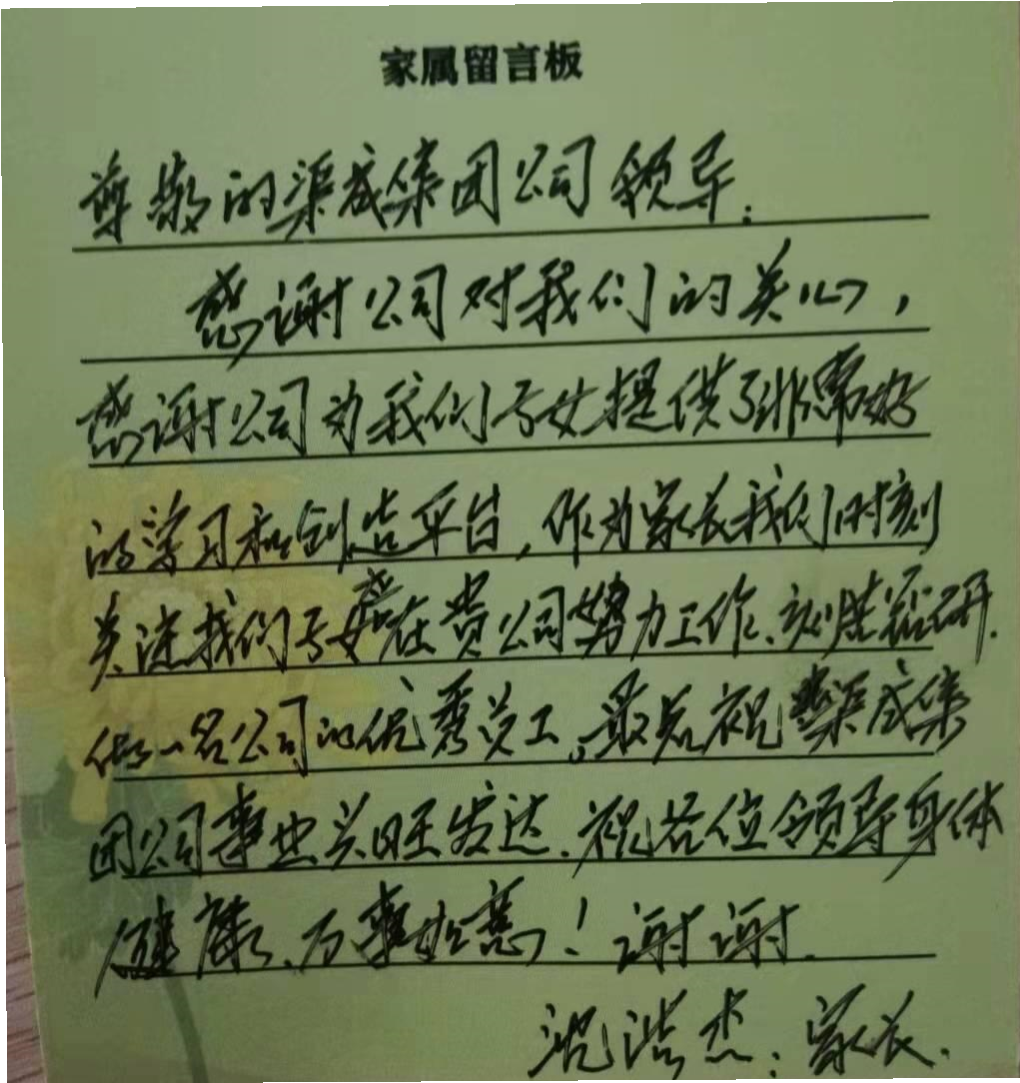 家属留言板
尊敬的渠成集团公司领导:
感谢公司对我们的关心,
感谢公司为我们子女提供了非常好
的学习和创造平台,作为家长我们时刻
关注我们子女在贵公司努力工作、刻苦钻研.
做一名公司的优秀员工。最后祝渠成集
团公司事业兴旺发达.祝各位领导身体
健康、万事如意!谢谢.
沈浩杰:家长.